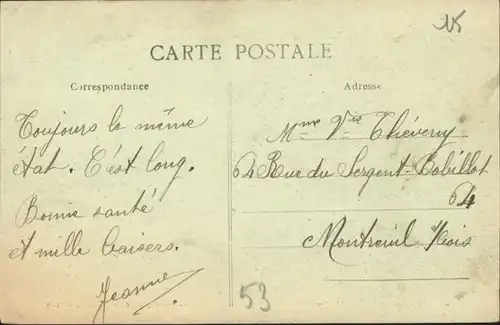 15
CARTE POSTALE
Correspondance
Adresse
Toujours le même
état. C'est long.
Bonne santé
et mille baisers.
Jeanne
Mme Vve Théveny
62 Rue du Sergent-Bobillot
62
Montreuil s/Bois
53